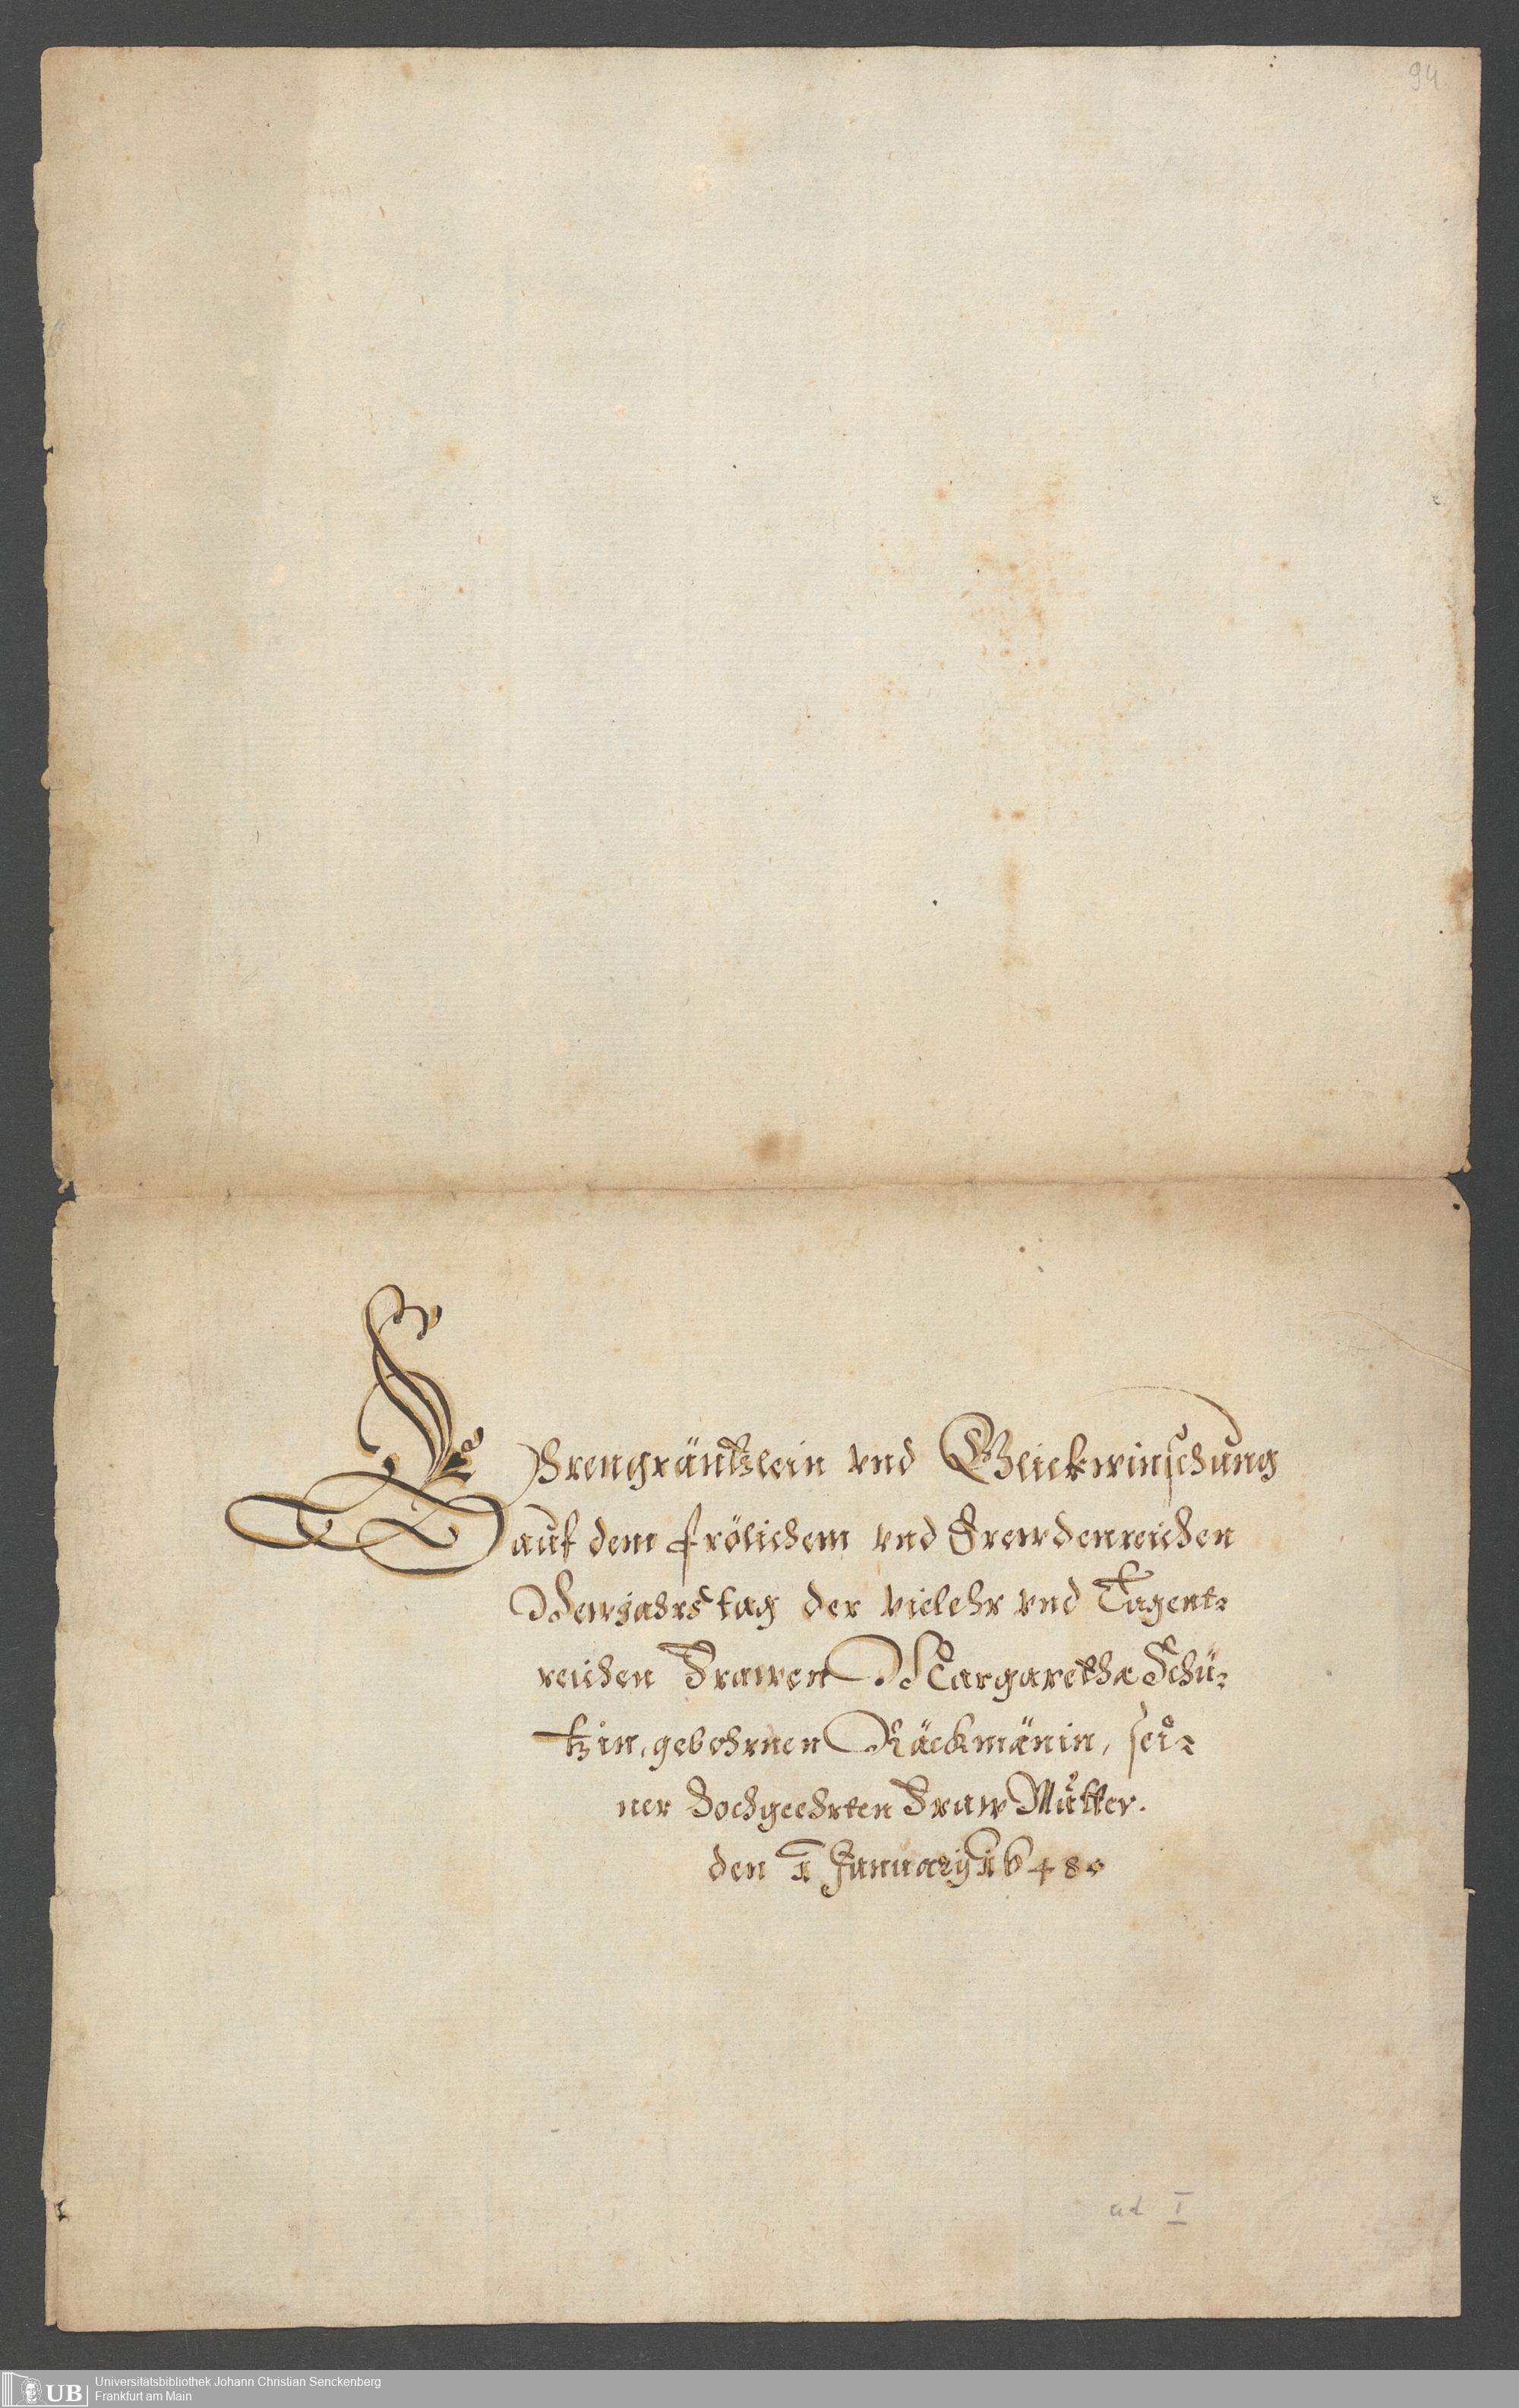 94
EHrengräntzlein vnd Glickwinschung
auf dem frölichem vnd Frewdenreichen
Newjahrs tag der vielehr vnd Tugent-
reichen Frawen Margaretha Schü-
tzin, gebohrnen Räckmänin, sei-
ner Hochgeehrten Fraw Mutter.
den 1 Januarij 1648.
ad I
UB
Universitätsbibliothek Johann Christian Senckenberg
Frankfurt am Main